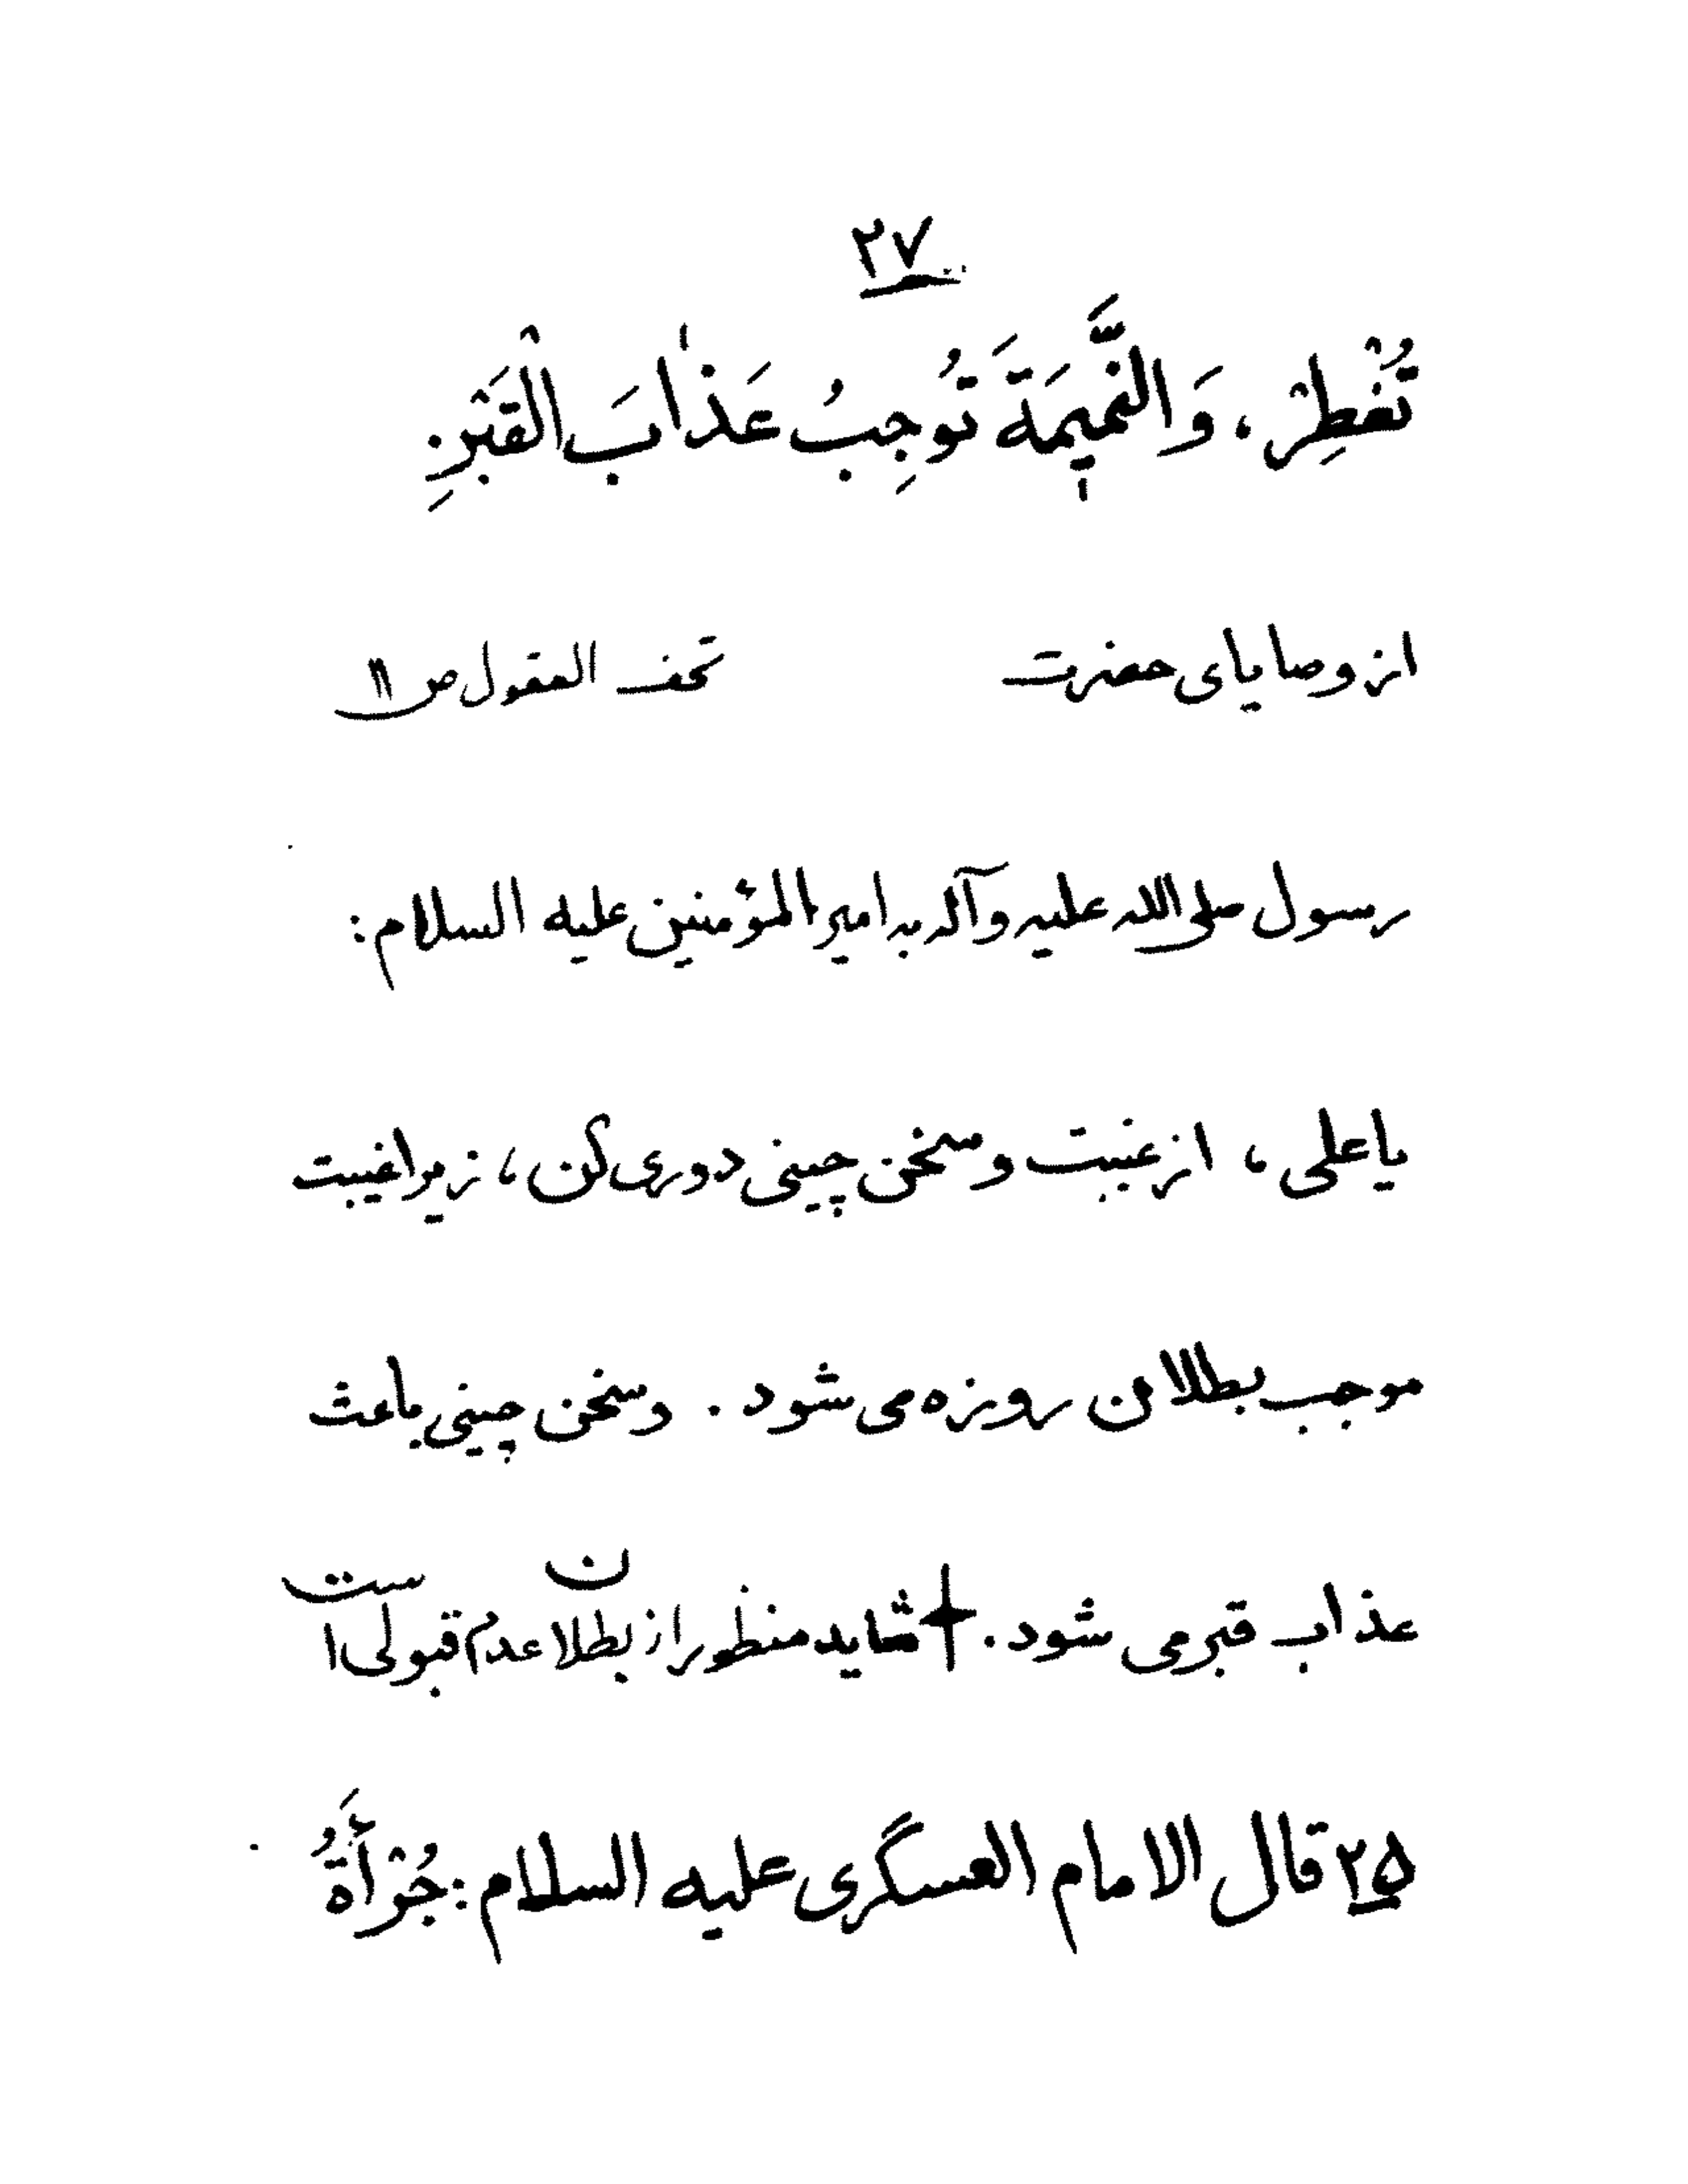 ۲۷
تُفْطِرْ، وَالنَّمیمَةَ تُوجِبُ عَذٰابَ الْقَبْرِ.
از وصایای حضرت تحف العقول ص
رسول صلی الله علیه وآله به امیرالمؤمنین علیه السلام:
یا علی، از غیبت و سخن چینی دوری کن، زیرا غیبت
موجب بطلان روزه می شود. و سخن چینی باعث
عذاب قبر می شود. + شاید منظور از بطلان عدم قبولی است
۲۵ قال الامام العسگری علیه السلام: جُرْأَةُ